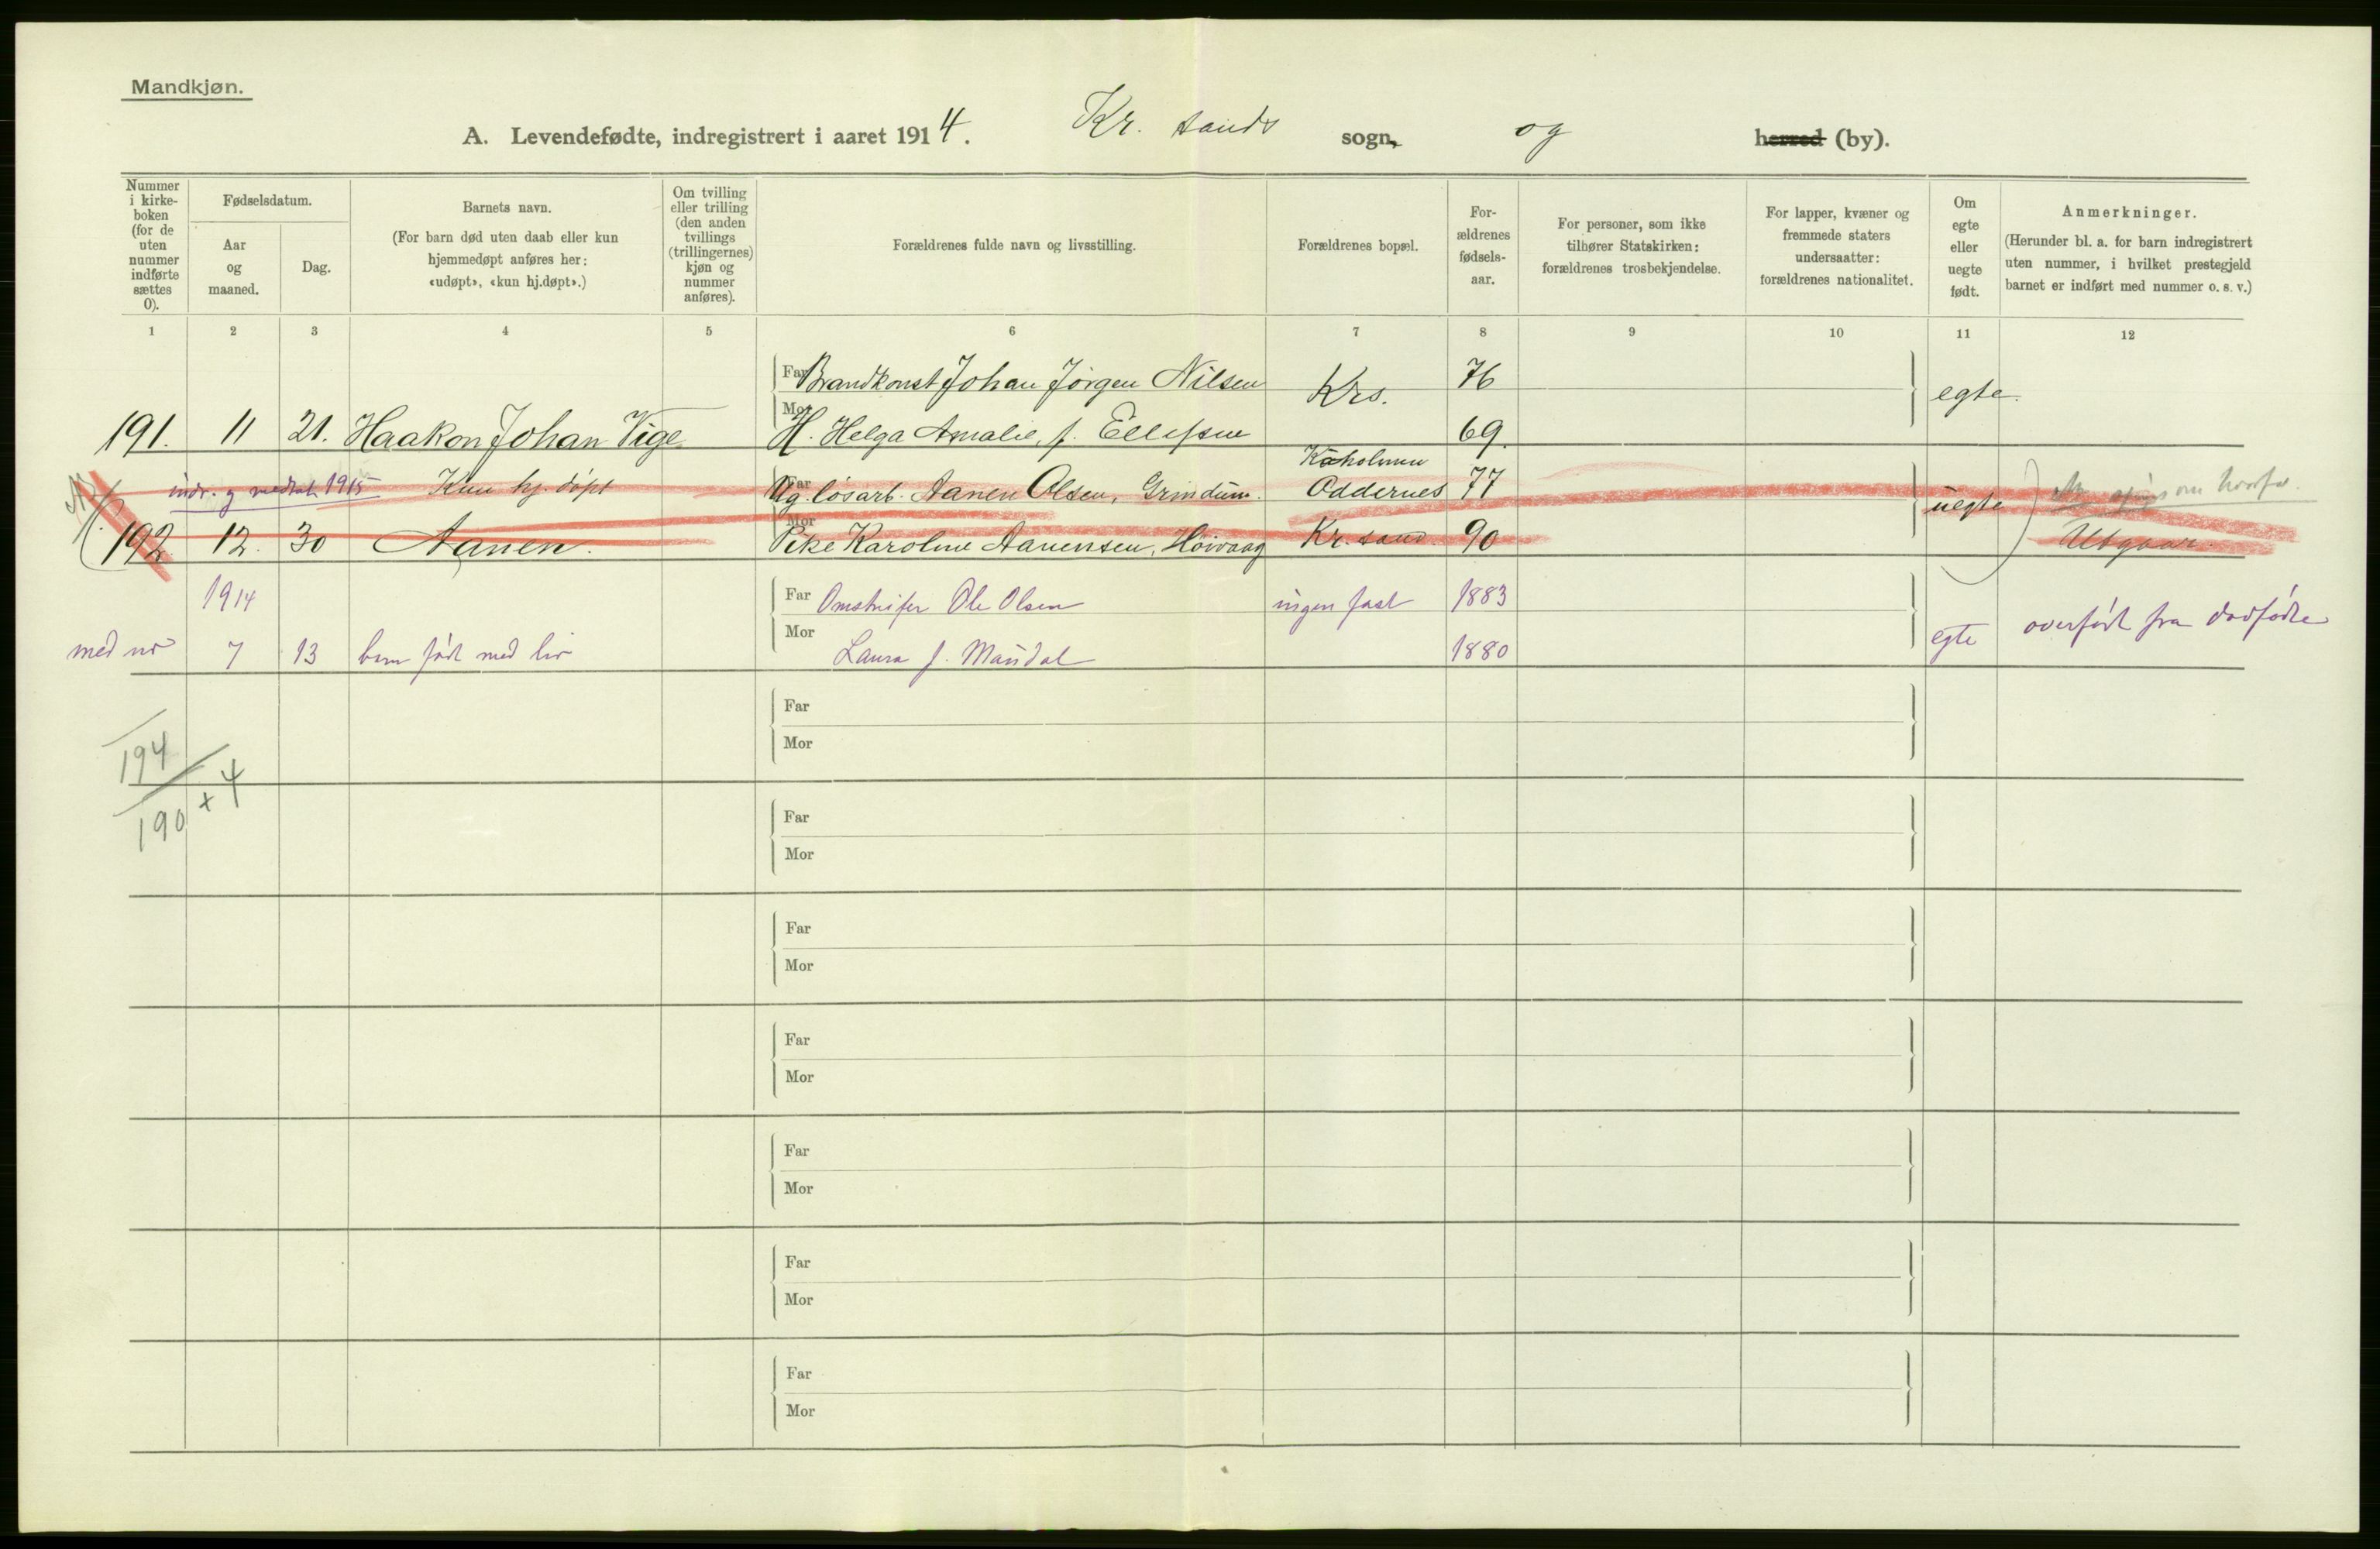 Mandkjøn.
A. Levendefødte, indregistrert i aaret 1914. Kr. sands sogn, og herred (by).
Nummer i kirkeboken (for de uten nummer indførte sættes 0).
Fødselsdatum.
Aar og maaned.
Dag.
Barnets navn.
(For barn død uten daab eller kun hjemmedøpt anføres her: «udøpt», «kun hj.døpt».)
Om tvilling eller trilling (den anden tvillings (trillingernes) kjøn og nummer anføres).
Forældrenes fulde navn og livsstilling.
Forældrenes bopæl.
Forældrenes fødselsaar.
For personer, som ikke tilhører Statskirken: forældrenes trosbekjendelse.
For lapper, kvæner og fremmede staters undersaatter: forældrenes nationalitet.
Om egte eller uegte født.
Anmerkninger.
(Herunder bl. a. for barn indregistrert uten nummer, i hvilket prestegjeld barnet er indført med nummer o. s. v.)
1 2 3 4 5 6 7 8 9 10 11 12
Far Brandkonst Johan Jörgen Nilsen Krs. 76 egte.
191. 11 21. Haakon Johan Vige Mor H. Helga Amalie, f. Ellefsen 69.
Kaholmen
indr. og 1915 Kun hj. döpt Far Ug. lösarb. Aanen Olsen, Grindum. Oddernes 77 uegte om
192 12. 30 Aanen. Mor Pike Karoline Aanensen, Höivaag Kr. sand. 90 Utgaar.
1914 Far Omstreifer Ole Olsen ingen fast 1883
med no 7 13 barn född med liv Mor Laura f. Mandal 1880 egte overfört fra dødfødte
Far
Mor
194
190 + 4
Far
Mor
Far
Mor
Far
Mor
Far
Mor
Far
Mor
Far
Mor